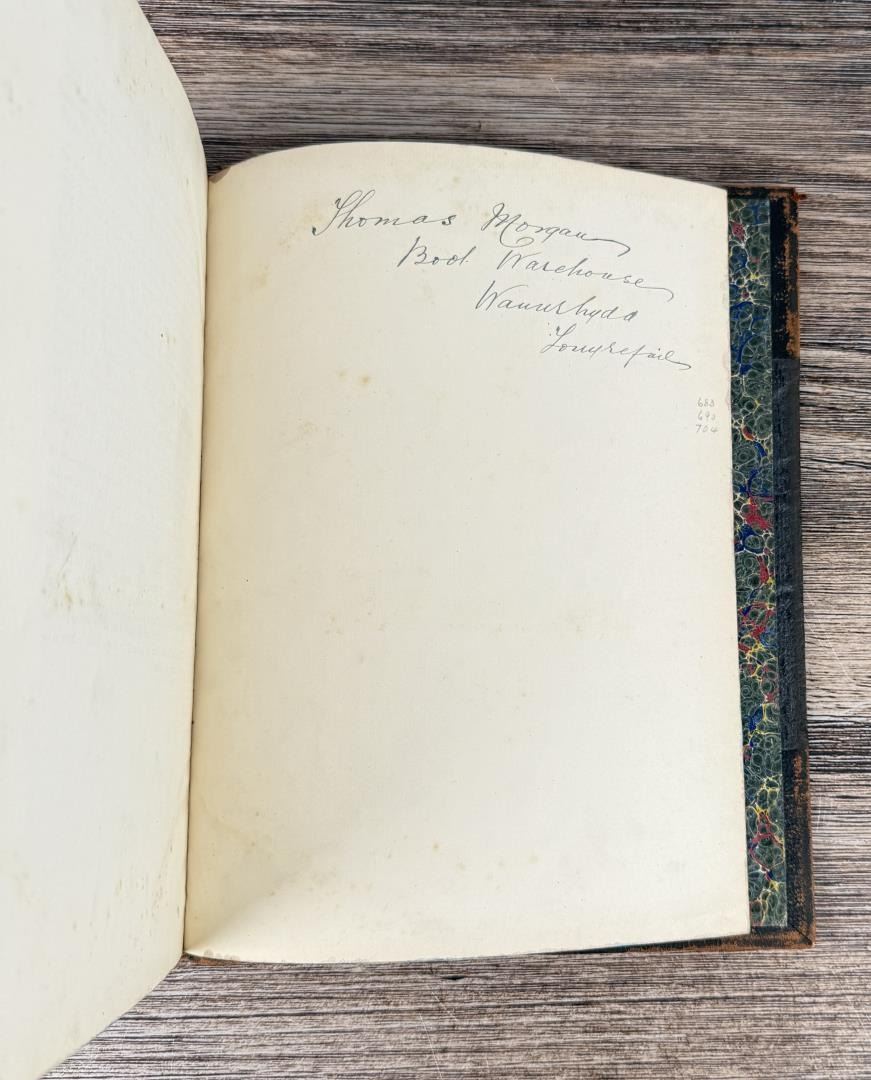 Thomas Morgan
Boot Warehouse
Waunrhydd
Tonyrefail
683
690
704